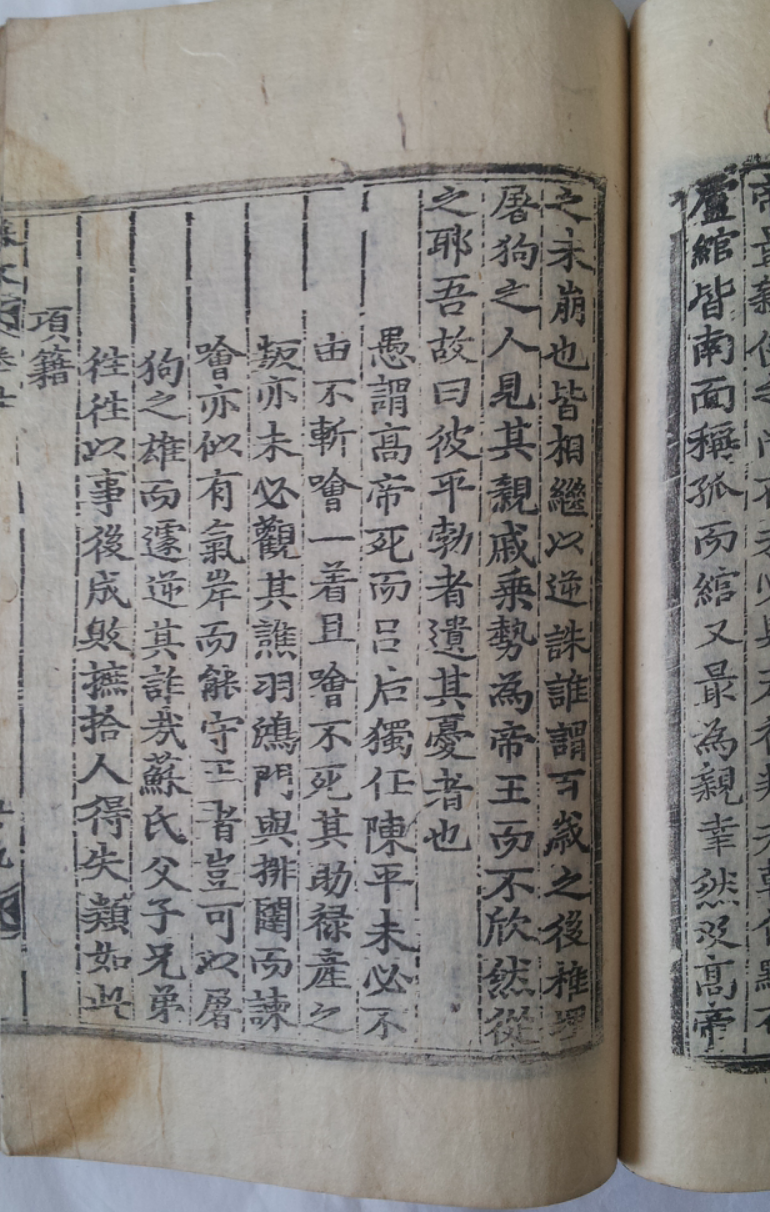 盧綰皆南面稱孤而綰又最為親幸然及高帝
之未崩也皆相繼以逆誅誰謂百歲之後椎埋
屠狗之人見其親戚乘勢為帝王而不欣然從
之耶吾故曰彼平勃者遺其憂者也
愚謂高帝死而呂后獨任陳平未必不
由不斬噲一着且噲不死其助祿產之
叛亦未必觀其譙羽鴻門與排闥而諫
噲亦似有氣岸而能守正者豈可以屠
狗之雄而遽逆其詐哉蘇氏父子兄弟
徃徃以事後成敗摭拾人得失類如此
項籍